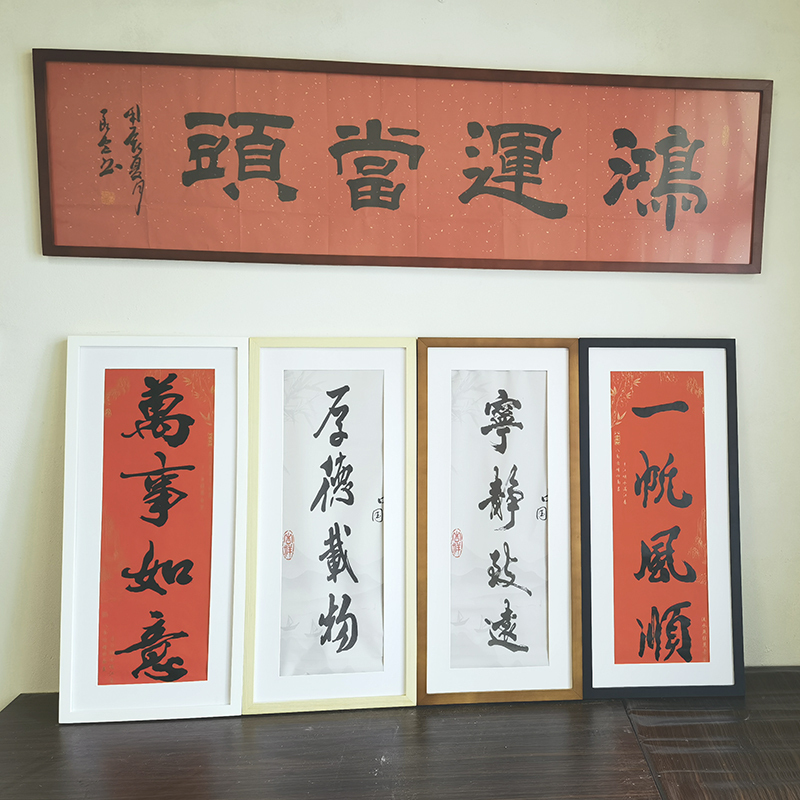 鴻運當頭
萬事如意
厚德載物
寧靜致遠
一帆風順